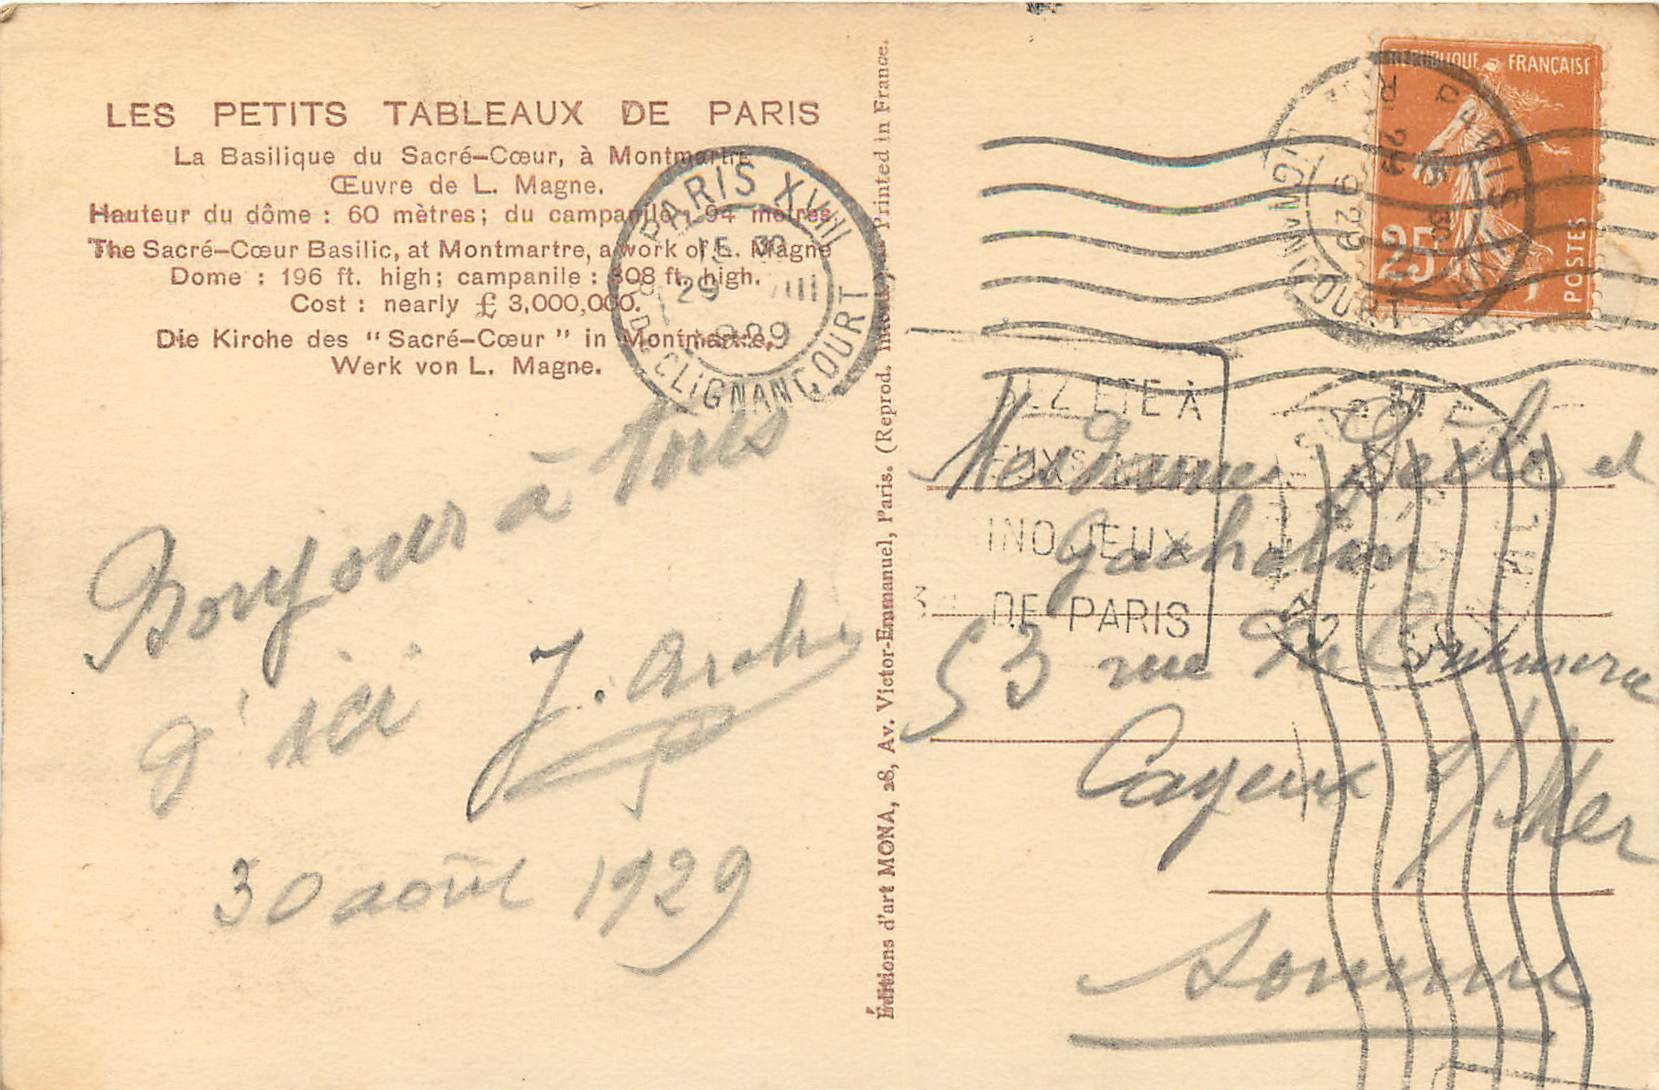 LES PETITS TABLEAUX DE PARIS
La Basilique du Sacré-Cœur, à Montmartre
Œuvre de L. Magne.
Hauteur du dôme : 60 mètres; du campanile : 94 mètres.
The Sacré-Cœur Basilic, at Montmartre, a work of L. Magne
Dome : 196 ft. high; campanile : 308 ft. high.
Cost : nearly £ 3,000,000.
Die Kirche des "Sacré-Cœur" in Montmartre,
Werk von L. Magne.
PARIS XVIII
15 30
29 VIII
1929
R. DE CLIGNANCOURT
Bonjour à tous
d'ici J. Arche
30 août 1929
Éditions d'art MONA, 26, Av. Victor-Emmanuel, Paris. (Reprod. interd.) Printed in France.
RÉPUBLIQUE FRANÇAISE
25c
POSTES
PARIS XVIII
R. CLIGNANCOURT
ÉTÉ À
EUX
DE PARIS
Mesdames et
53 rue
Cayeux s/ Mer
Somme